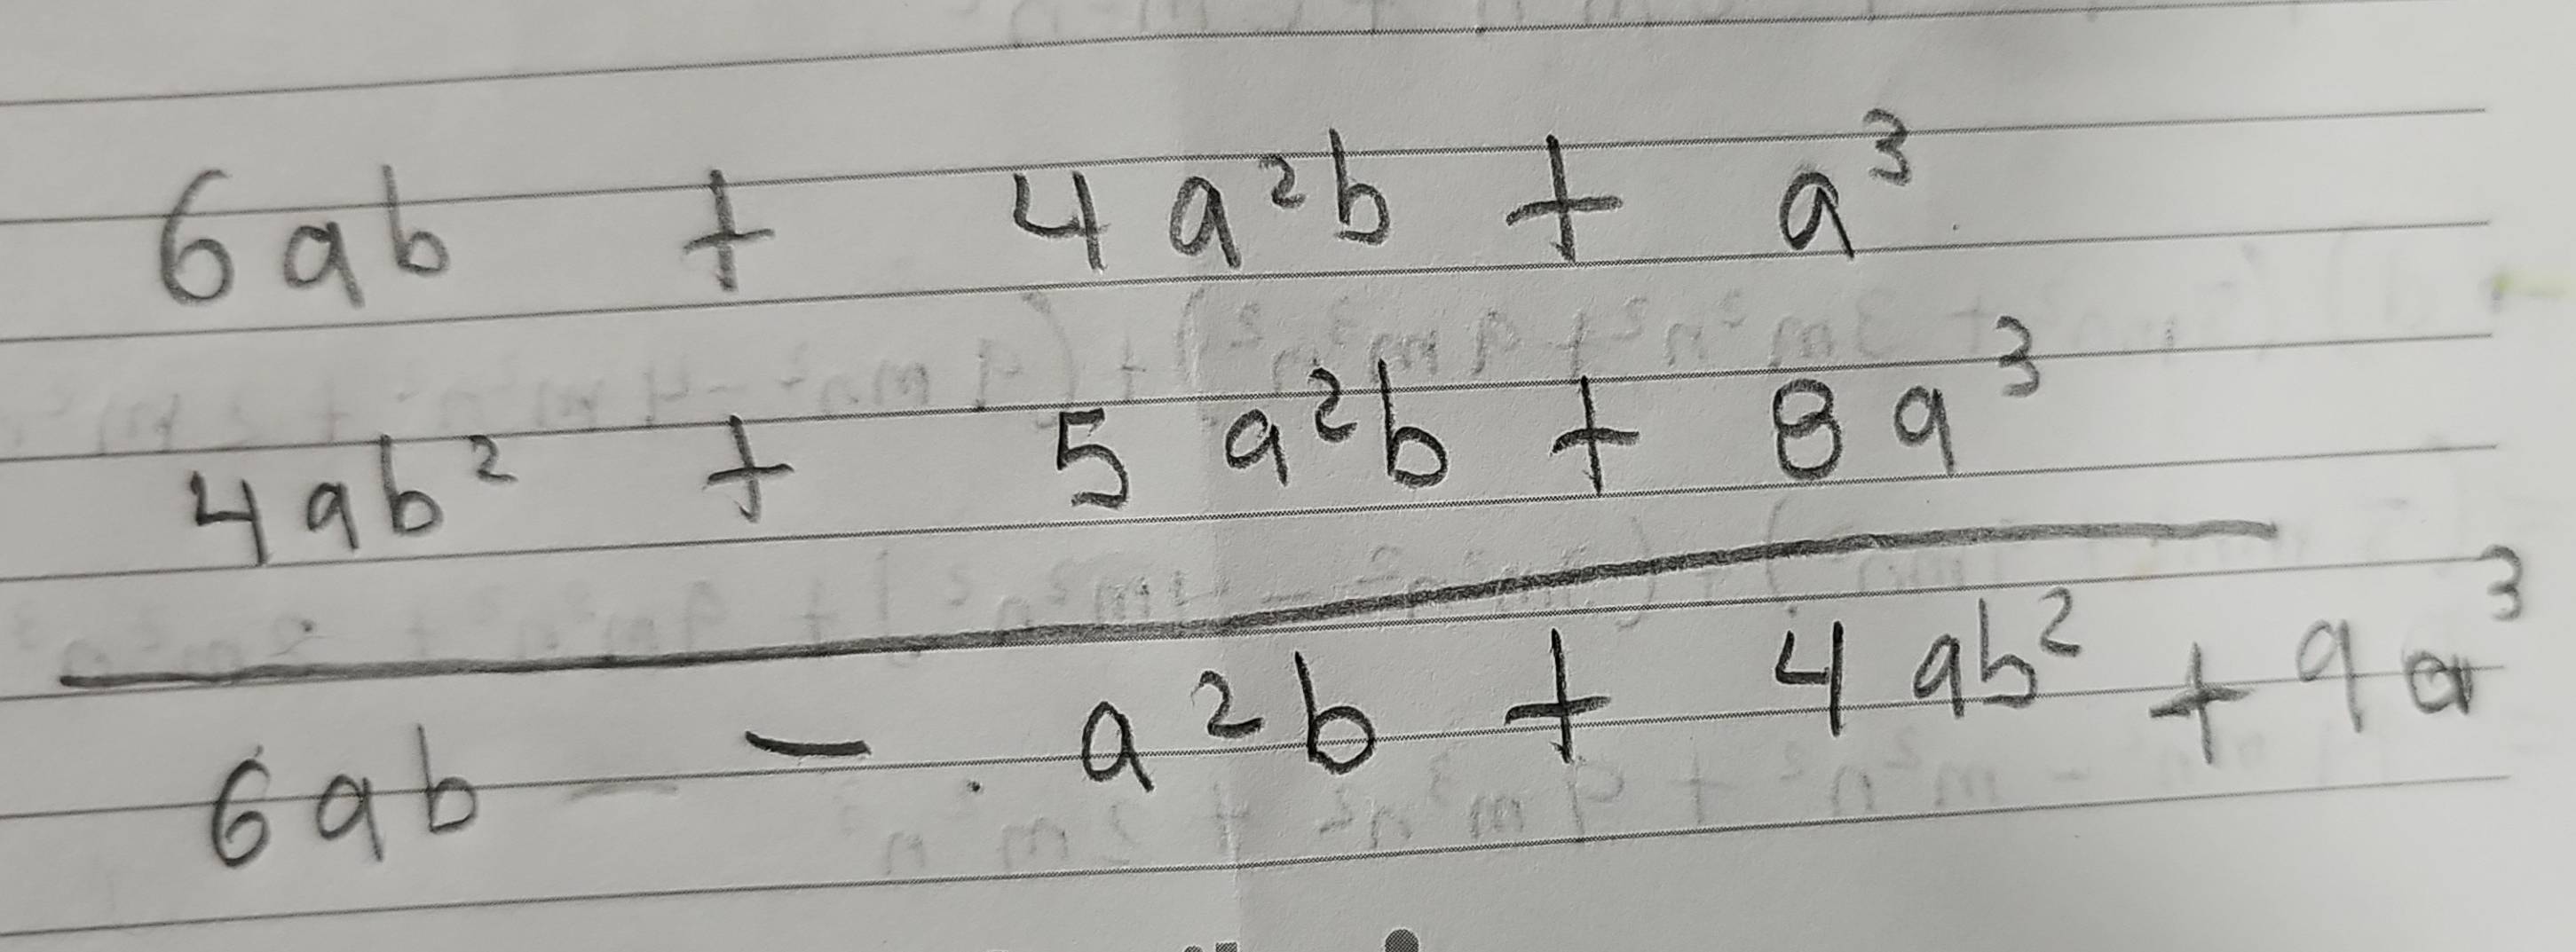 6ab + 4a²b + a³
4ab² + 5a²b + 8a³
6ab - a²b + 4ab² + 9a³